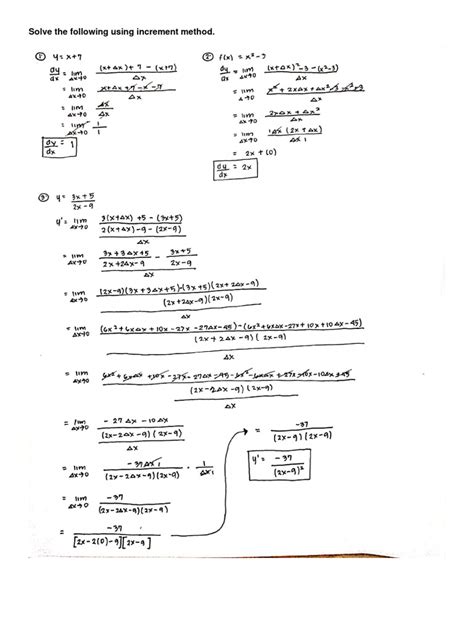 Solve the following using increment method.
① y = x+7
dy/dx = lim Δx→0 (x+Δx)+7 - (x+7) / Δx
= lim Δx→0 x+Δx+7-x-7 / Δx
= lim Δx→0 Δx / Δx
= lim Δx→0 1 / 1
dy/dx = 1
② f(x) = x²-3
dy/dx = lim Δx→0 (x+Δx)²-3-(x²-3) / Δx
= lim Δ→0 x²+2xΔx+Δx²-3-x²+3 / Δx
= lim Δx→0 2xΔx+Δx² / Δx
= lim Δx→0 Δx (2x+Δx) / Δx 1
= 2x + (0)
dy/dx = 2x
③ y = 3x+5 / 2x-9
y' = lim Δx→0 3(x+Δx)+5 - (3x+5) / 2(x+Δx)-9 - (2x-9) / Δx
= lim Δx→0 3x+3Δx+5 / 2x+2Δx-9 - 3x+5 / 2x-9 / Δx
= lim Δx→0 (2x-9)(3x+3Δx+5)-(3x+5)(2x+2Δx-9) / (2x+2Δx-9)(2x-9) / Δx
= lim Δx→0 (6x²+6xΔx+10x-27x-27Δx-45)-(6x²+6xΔx-27x+10x+10Δx-45) / (2x+2Δx-9)(2x-9) / Δx
= lim Δx→0 6x²+6xΔx+10x-27x-27Δx-45-6x²-6xΔx+27x-10x-10Δx+45 / (2x-2Δx-9)(2x-9) / Δx
= lim Δx→0 -27Δx-10Δx / (2x-2Δx-9)(2x-9) / Δx
= lim Δx→0 -37Δx 1 / (2x-2Δx-9)(2x-9) · 1 / Δx 1
= lim Δx→0 -37 / (2x-2Δx-9)(2x-9)
= -37 / [2x-2(0)-9][2x-9]
= -37 / (2x-9)(2x-9)
y' = -37 / (2x-9)²